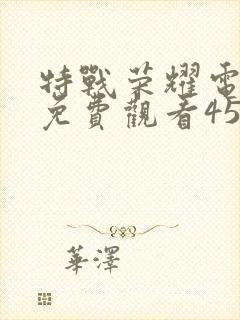 特戰荣耀電
免費觀看45
華澤